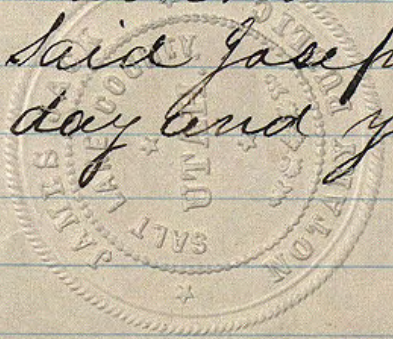 Said Josep
day and y
JAMES
NOTARY PUBLIC
SALT LAKE COUNTY
UTAH